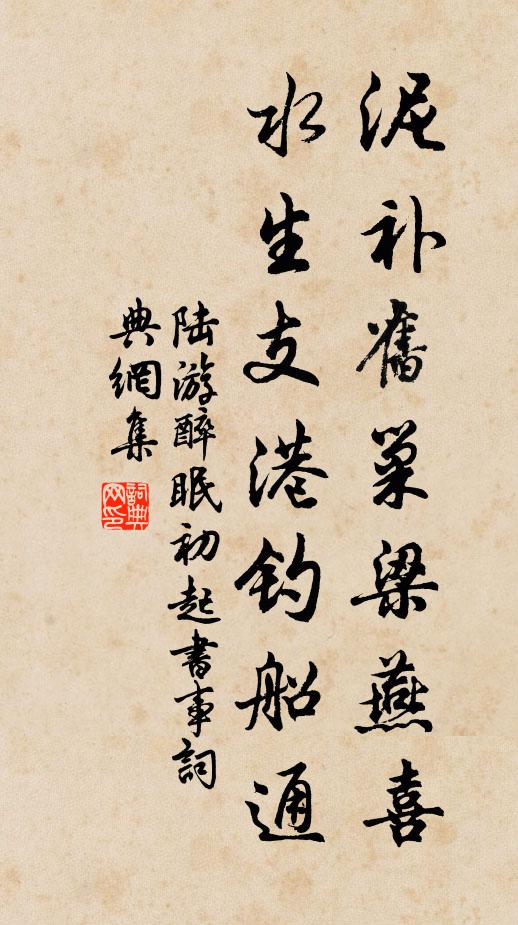 泥补舊巢梁燕喜
水生支港钓船通
陆游醉眠初起書事詞
典網集
詞典网印